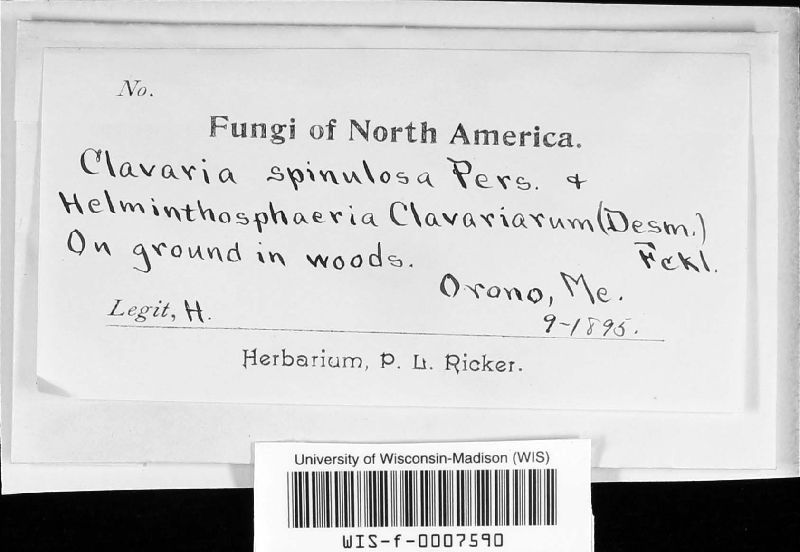 No.
Fungi of North America.
Clavaria spinulosa Pers. &
Helminthosphaeria Clavariarum (Desm.)
Fckl.
On ground in woods.
Orono, Me.
Legit, H.
9-1895.
Herbarium, P. L. Ricker.
University of Wisconsin-Madison (WIS)
WIS-f-0007590